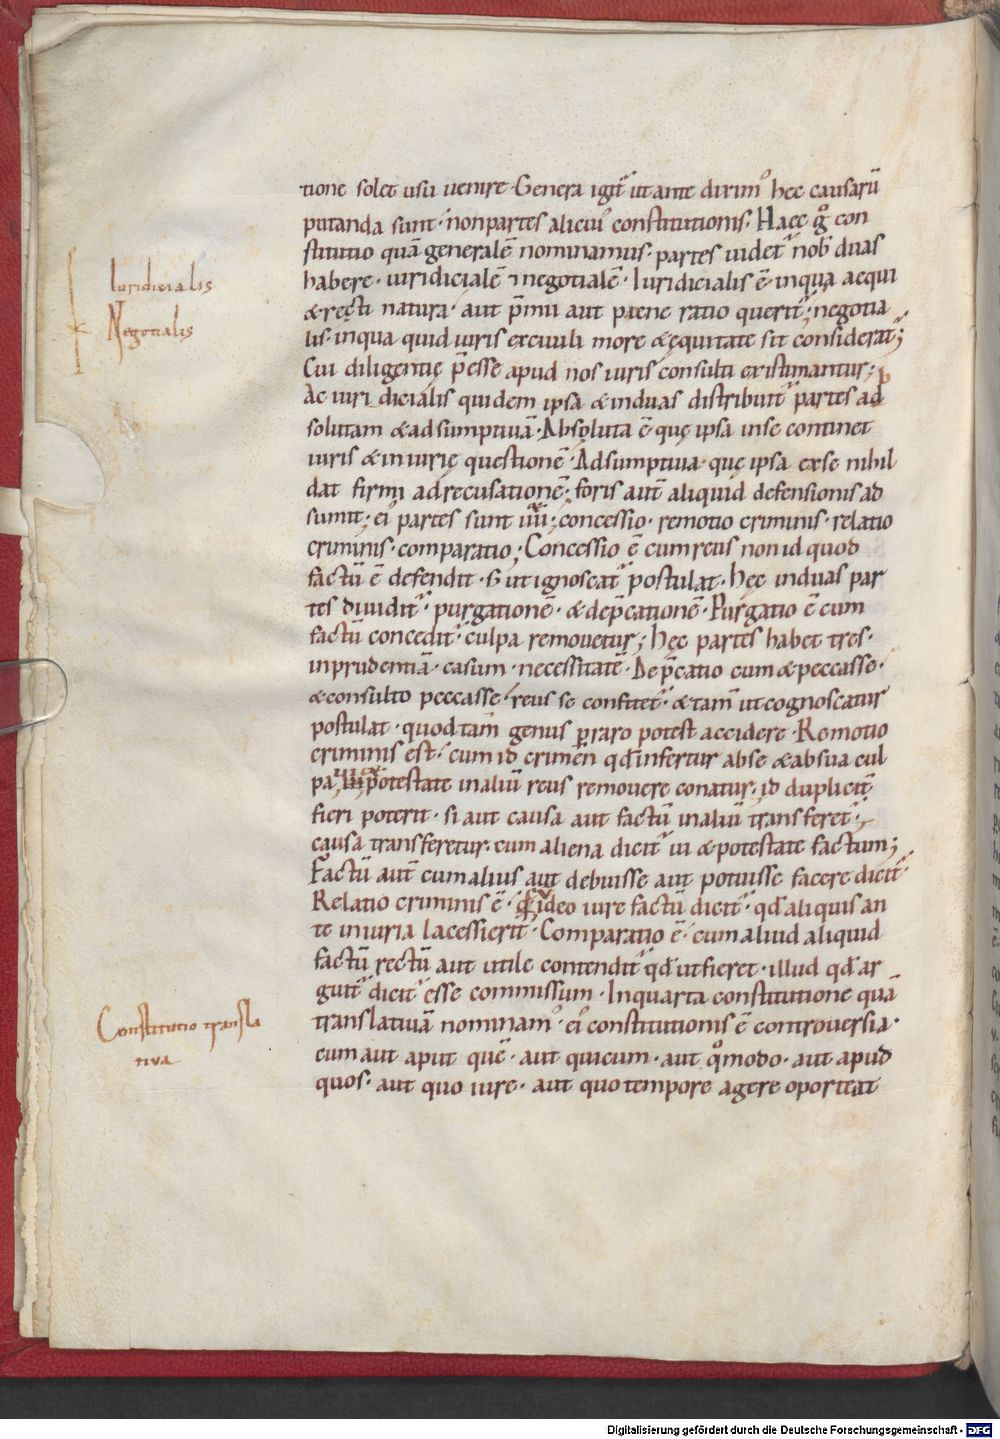 tione solet usu uenire· Genera igit᷑ ut ante diximꝰ hec causarũ
putanda sunt· non partes alicuiꝰ constitutionis· Haec gͦ con
stitutio quã generalẽ nominamus· partes uidet᷑ nob̄ duas
habere· iuridicialẽ ⁊ negotialẽ· Iuridicialis ẽ· in qua aequi
& recti natura· aut p̄mii aut paene ratio querit᷑; negotia
lis· in qua quid iuris ex ciuili more & ęquitate sit considerat᷑;
Cui diligentię p̄esse apud nos iuris consulti existimantur;
Ac iuridicialis quidem ipsa & in duas distribuit᷑ partes ab
solutam & adsumptiuã· Absoluta ẽ quę ipsa in se continet
iuris & iniurię questionẽ· Adsumptiua· quę ipsa ex se nihil
dat firmi ad recusationẽ; foris aut̃ aliquid defensionis ad
sumit; eiꝰ partes sunt iiii; concessio· remotio criminis· relatio
criminis· comparatio; Concessio ẽ cum reus non id quod
factũ ẽ defendit· s; ut ignoscat᷑ postulat· hęc in duas par
tes diuidit᷑· purgationẽ· & dep̄cationẽ· Purgatio ẽ cum
factũ concedit᷑· culpa remouetur; hęc partes habet tres·
inprudentiã· casum· necessitatẽ· Dep̄catio cum & peccasse·
& consulto peccasse· reus se confitet᷑· & tam̃ ut cognoscatur
postulat· quod tam̃ genus ꝑraro potest accidere· Remotio
criminis est· cum id crimen qd̄ infertur ab se & ab sua cul
pa potestate in aliũ reus remouere conatur· id duplicit̃
fieri poterit· si aut causa aut factũ in aliũ transferet᷑·;
causa transferetur· cum aliena dicit᷑ ui & potestate factum;
Factũ aut̃ cum alius aut debuisse aut potuisse facere dicit᷑·
Relatio criminis ẽ· ideo iure factũ dicit᷑· qd̄ aliquis an
te iniuria lacessierit᷑· Comparatio ẽ· cum aliud aliquid
factũ rectũ aut utile contendit᷑ qd̄ ut fieret· illud qd̄ ar
guit᷑ dicit᷑ esse commissum· In quarta constitutione quã
translatiuã nominamꝰ eiꝰ constitutionis ẽ controuersia·
cum aut aput quẽ· aut quicum· aut qͦmodo· aut apud
quos· aut quo iure· aut quo tempore agere oporteat
Iuridicialis
Negotialis
Constitutio transla
tiua
Digitalisierung gefördert durch die Deutsche Forschungsgemeinschaft - DFG